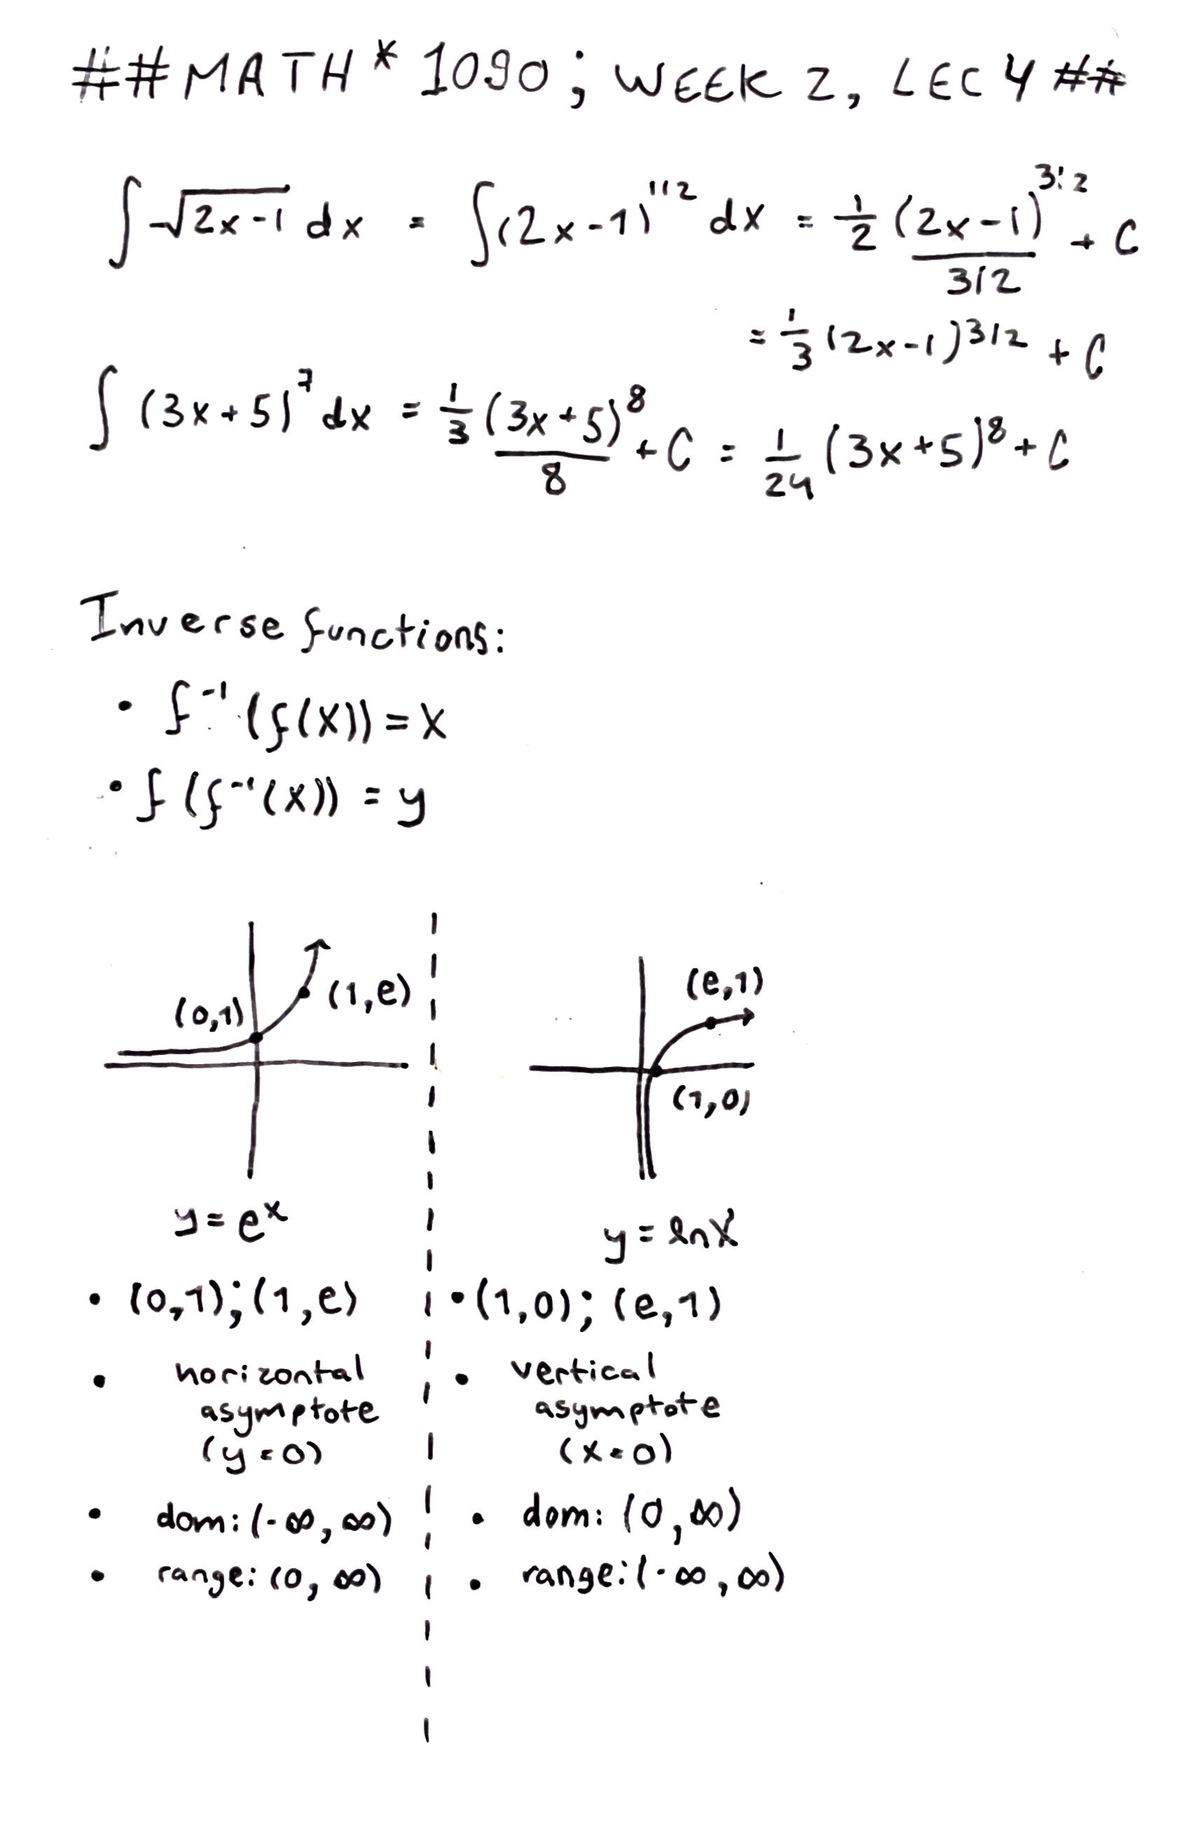 ##MATH*1090; WEEK 2, LEC 4 ##
∫√(2x-1) dx = ∫(2x-1)^1/2 dx = 1/2 (2x-1)^3/2 / 3/2 + C
= 1/3 (2x-1)^3/2 + C
∫(3x+5)^7 dx = 1/3 (3x+5)^8 / 8 + C = 1/24 (3x+5)^8 + C
Inverse functions:
• f⁻¹(f(x)) = x
• f(f⁻¹(x)) = y
(0,1) (1,e)
(e,1)
(1,0)
y = e^x
y = lnx
• (0,1); (1,e)
• (1,0); (e,1)
• horizontal
asymptote
(y=0)
• vertical
asymptote
(x=0)
• dom: (-∞, ∞)
• range: (0, ∞)
• dom: (0, ∞)
• range: (-∞, ∞)